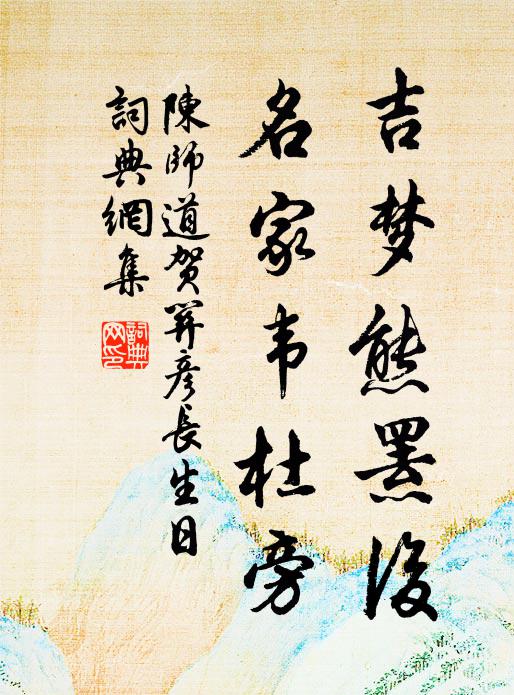 吉梦熊罴後
名家韦杜旁
陳師道賀關彦長生日
詞典網集
詞典網印